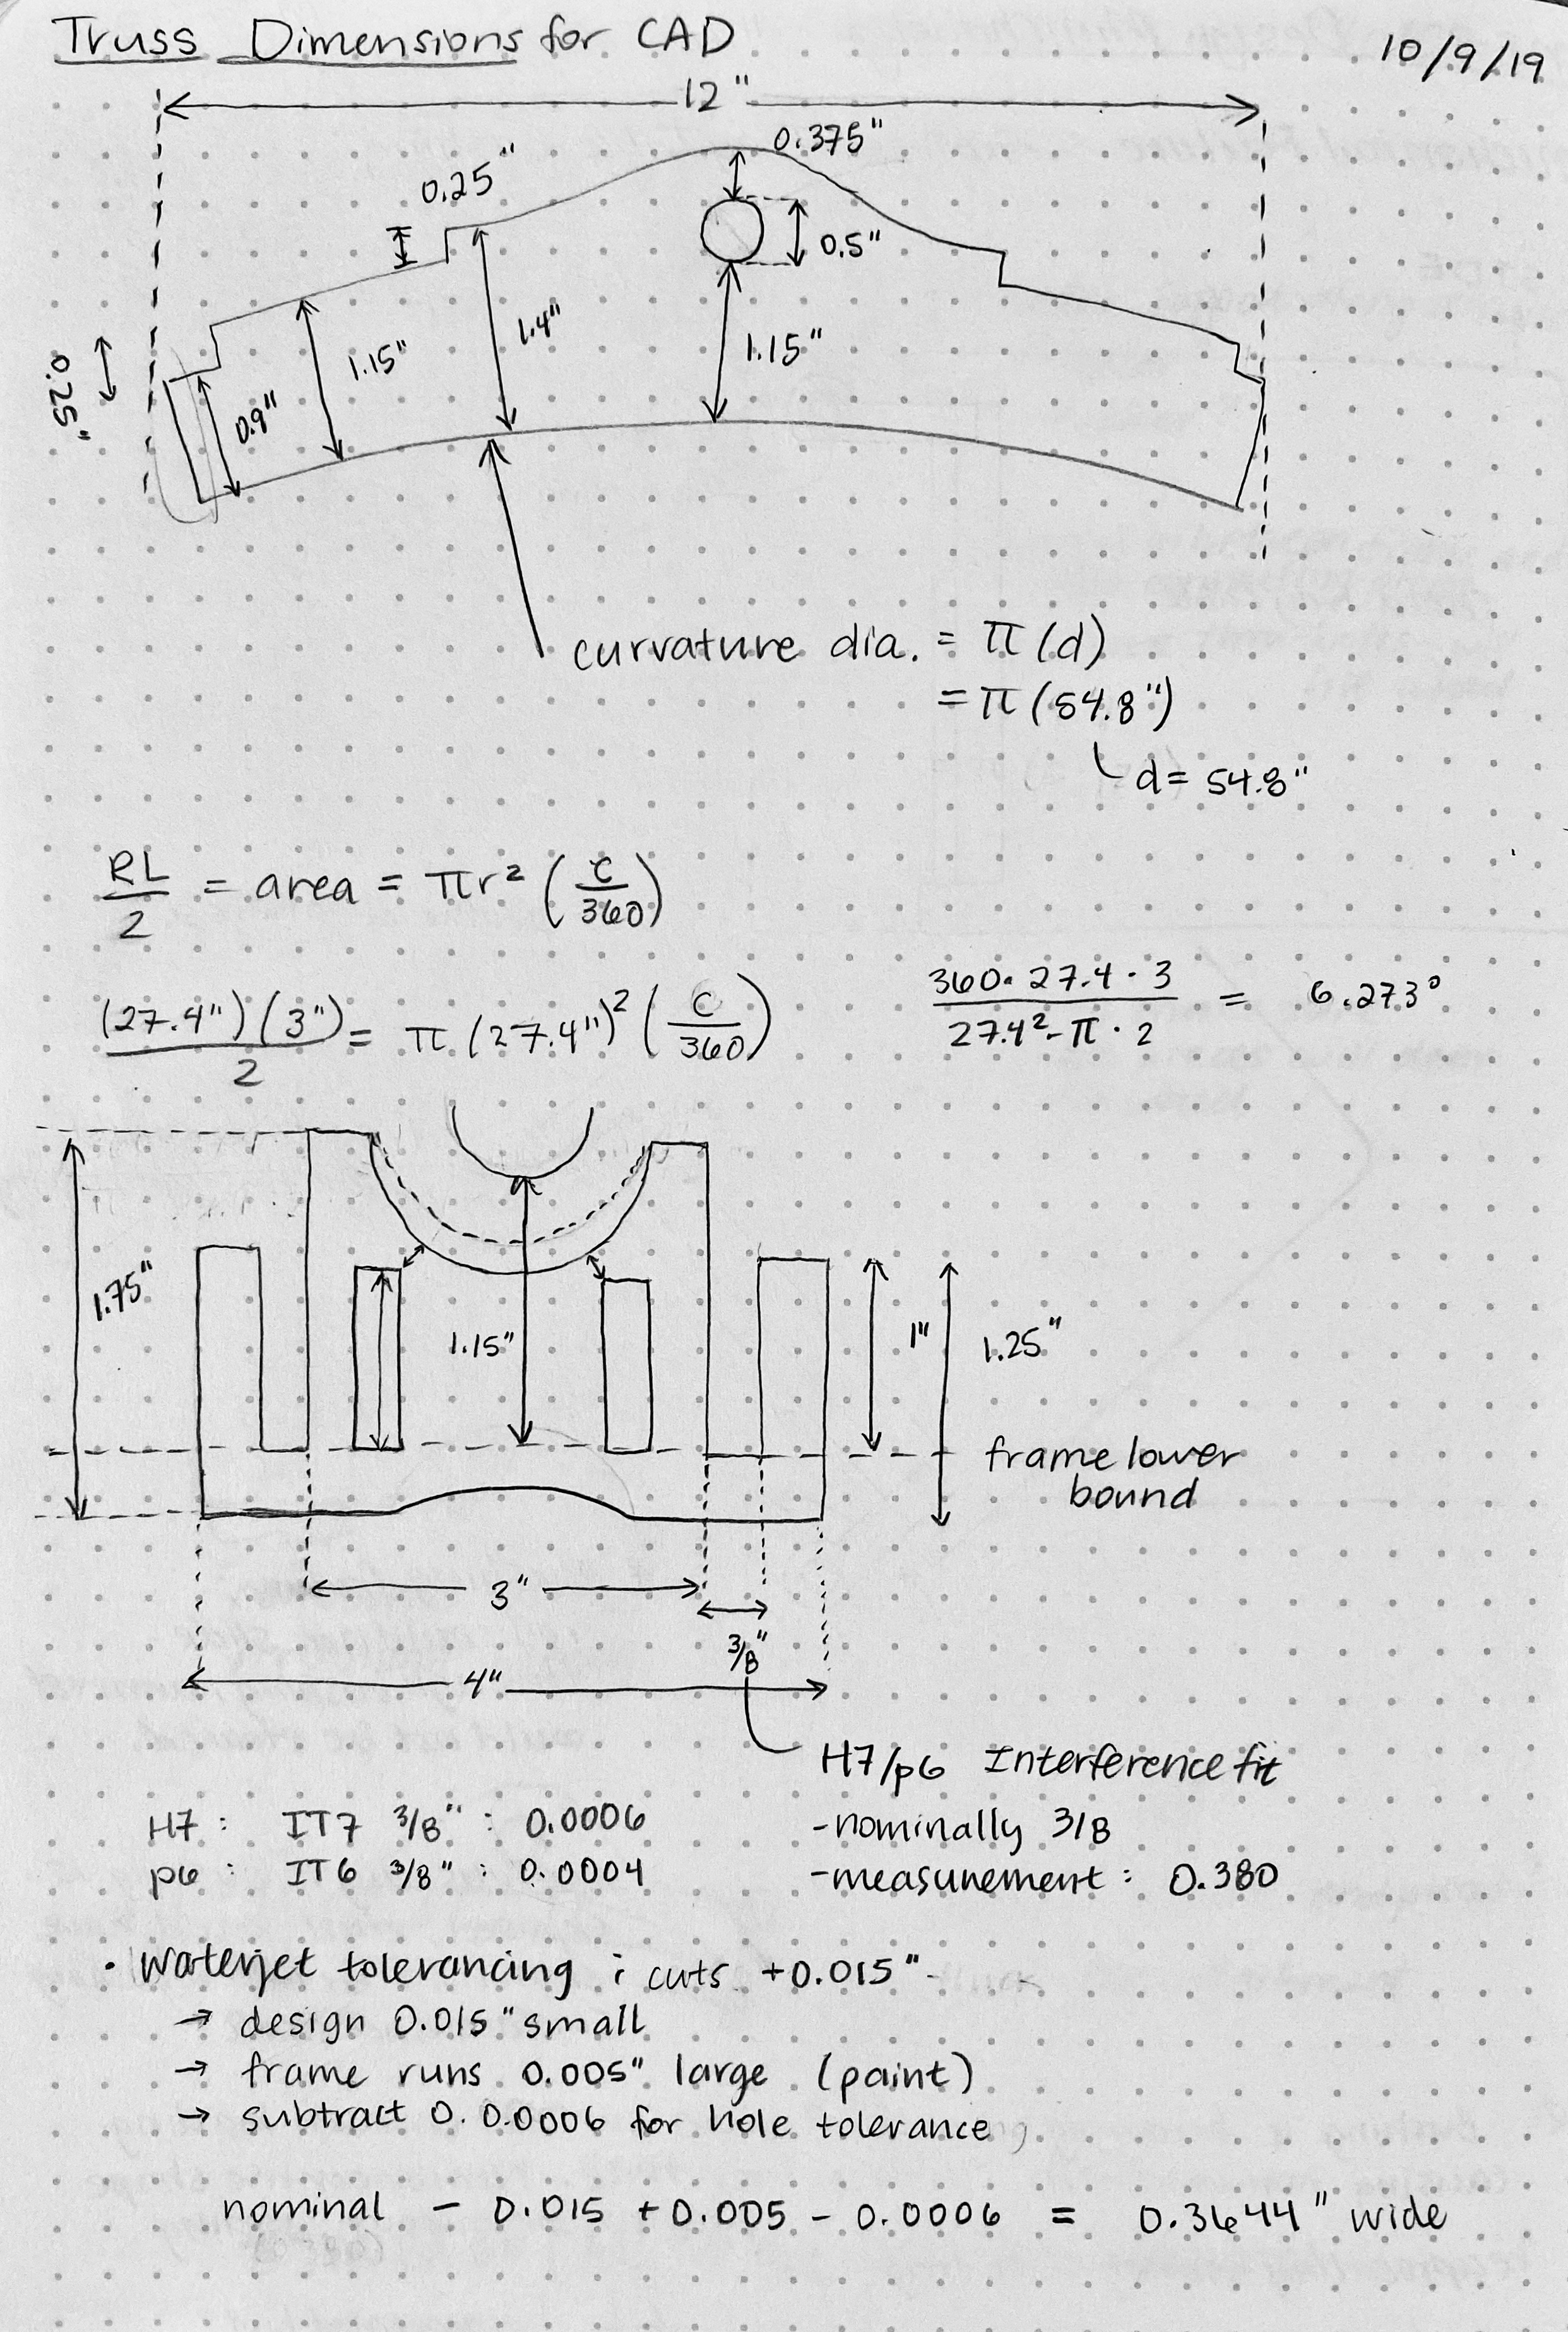 Truss Dimensions for CAD
10/9/19
12"
0.375"
0.25"
0.5"
1.4"
1.15"
1.15"
0.25"
0.9"
curvature dia. = π (d)
= π (54.8")
d = 54.8"
RL/2 = area = πr² (c/360)
(27.4") (3")/2 = π (27.4")² (c/360)
360 · 27.4 · 3/27.4² · π · 2 = 6.273°
1.75"
1.15"
1"
1.25"
frame lower
bound
3"
3/8"
4"
H7/p6 Interference fit
H7 : IT7 3/8" : 0.0006
- nominally 3/8
p6 : IT6 3/8" : 0.0004
- measurement : 0.380
• Waterjet tolerancing : cuts +0.015"
→ design 0.015" small
→ frame runs 0.005" large (paint)
→ subtract 0.0.0006 for hole tolerance
nominal - 0.015 + 0.005 - 0.0006 = 0.3644" wide